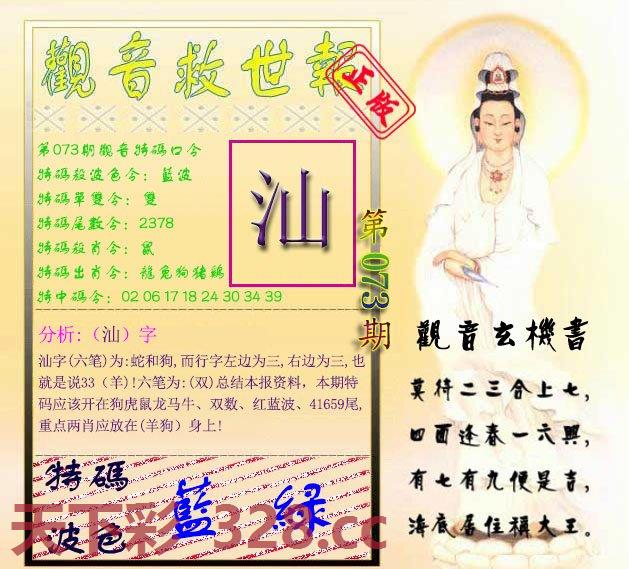 觀音救世報
正版
第073期觀音特碼口令
特碼殺波色令：藍波
特碼單雙令：雙
特碼尾數令：2378
特碼殺肖令：鼠
特碼出肖令：龍兔狗猪鷄
特中碼令：02 06 17 18 24 30 34 39
汕
第073期
分析:（汕）字
汕字(六笔)为:蛇和狗,而行字左边为三,右边为三,也
就是说33（羊)!六笔为:(双)总结本报资料，本期特
码应该开在狗虎鼠龙马牛、双数、红蓝波、41659尾,
重点两肖应放在(羊狗）身上!
特碼
波色
藍 綠
天下彩 328.cc
觀音玄機書
莫待二三合上七，
四面逢春一六興，
有七有九便是吉，
海底居住稱大王。